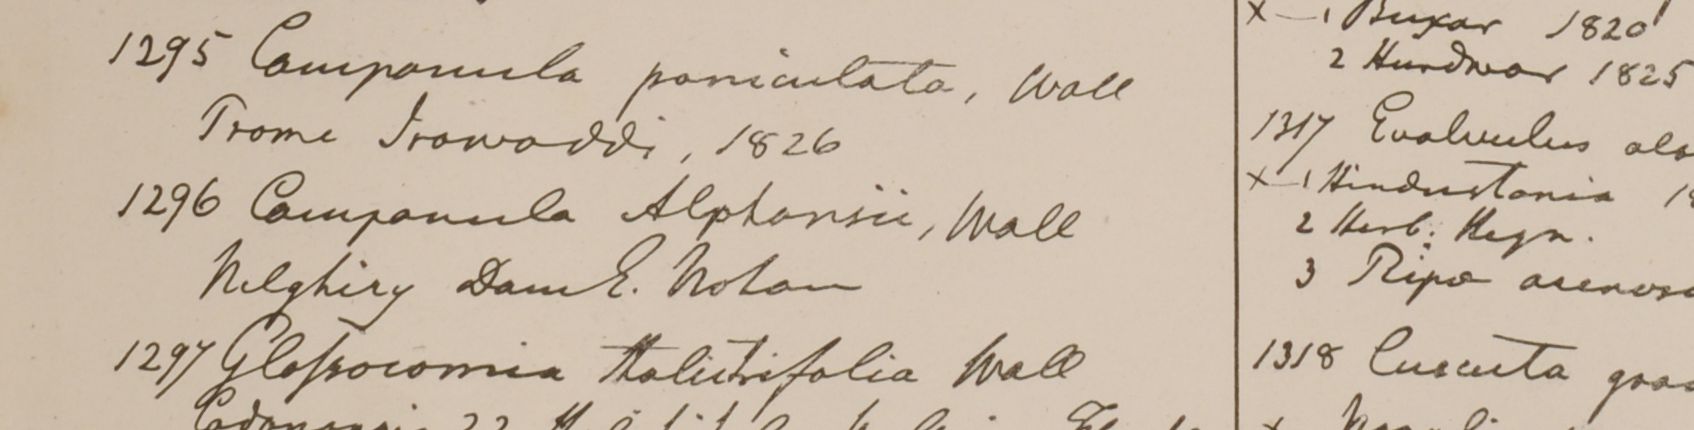 1295 Campanula paniculata, Wall
Prome Irawaddi, 1826
1296 Campanula Alphonsii, Wall
Nilghiry Dom E. Noton
1297 Glossocomia thalictrifolia Wall
x—1 Buxar 1820
2 Hurdwar 1825
1317 Evolvulus als
x—1 Hindustania
2 Herb. Heyn.
3 Ripa arenosa
1318 Cuscuta